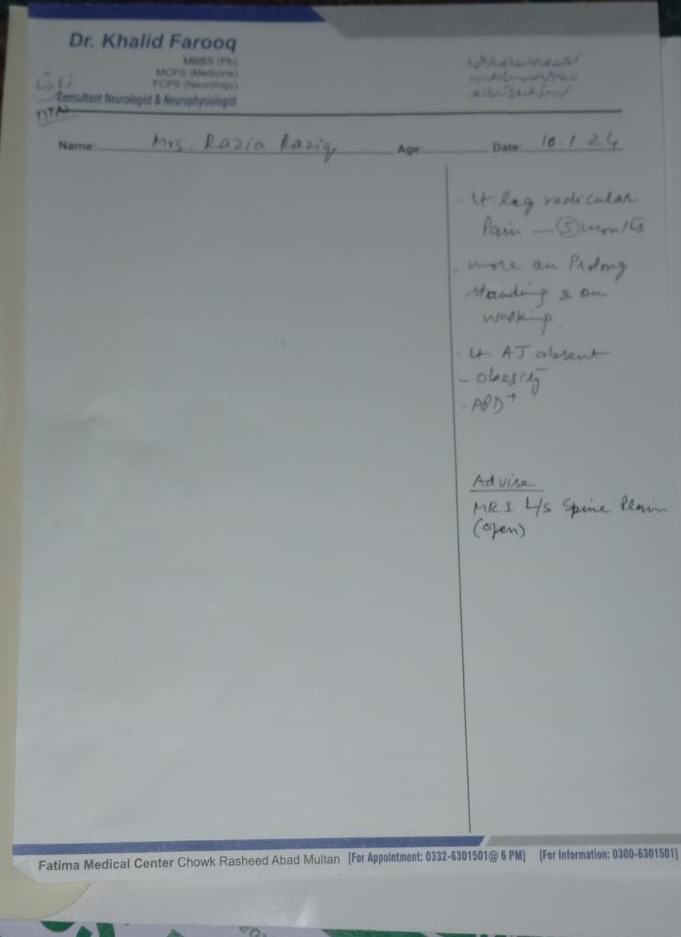 Dr. Khalid Farooq
MBBS (Pb)
MCPS (Medicine)
FCPS (Neurology)
Consultant Neurologist & Neurophysiologist
Name: Mrs. Razia Raziq Age: Date: 10.1.24
Lt leg radicular
Pain — 5
more on Prolong
standing & on
walking.
Lt AJ absent
- obesity
Advise
MRI L/S Spine Plain
(open)
Fatima Medical Center Chowk Rasheed Abad Multan [For Appointment: 0332-6301501@ 6 PM] [For Information: 0300-6301501]